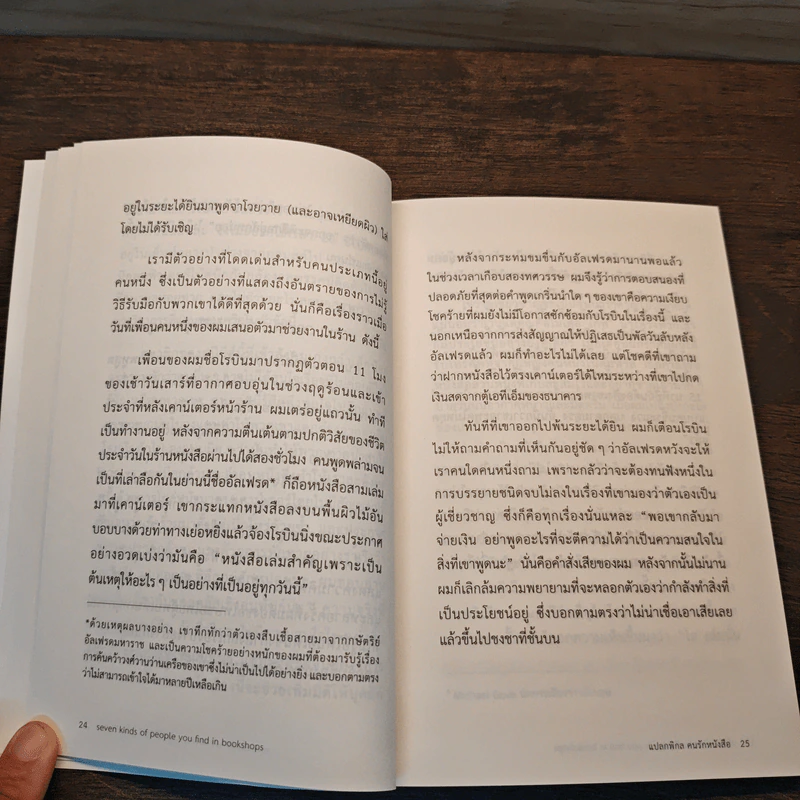 อยู่ในระยะได้ยินมาพูดจาโวยวาย (และอาจเหยียดผิว) ใส่
โดยไม่ได้รับเชิญ
เรามีตัวอย่างที่โดดเด่นสำหรับคนประเภทนี้อยู่
คนหนึ่ง ซึ่งเป็นตัวอย่างที่แสดงถึงอันตรายของการไม่รู้
วิธีรับมือกับพวกเขาได้ดีที่สุดด้วย นั่นก็คือเรื่องราวเมื่อ
วันที่เพื่อนคนหนึ่งของผมเสนอตัวมาช่วยงานในร้าน ดังนี้
เพื่อนของผมชื่อโรบินมาปรากฏตัวตอน 11 โมง
ของเช้าวันเสาร์ที่อากาศอบอุ่นในช่วงฤดูร้อนและเข้า
ประจำที่หลังเคาน์เตอร์หน้าร้าน ผมเตร่อยู่แถวนั้น ทำที
เป็นทำงานอยู่ หลังจากความตื่นเต้นตามปกติวิสัยของชีวิต
ประจำวันในร้านหนังสือผ่านไปได้สองชั่วโมง คนพูดพล่ามจน
เป็นที่เล่าลือกันในย่านนี้ชื่ออัลเฟรด* ก็ถือหนังสือสามเล่ม
มาที่เคาน์เตอร์ เขากระแทกหนังสือลงบนพื้นผิวไม้อัน
บอบบางด้วยท่าทางเย่อหยิ่งแล้วจ้องโรบินนิ่งขณะประกาศ
อย่างอวดเบ่งว่ามันคือ “หนังสือเล่มสำคัญเพราะเป็น
ต้นเหตุให้อะไร ๆ เป็นอย่างที่เป็นอยู่ทุกวันนี้”
*ด้วยเหตุผลบางอย่าง เขาทึกทักว่าตัวเองสืบเชื้อสายมาจากกษัตริย์
อัลเฟรดมหาราช และเป็นความโชคร้ายอย่างหนักของผมที่ต้องมารับรู้เรื่อง
การค้นคว้าวงศ์วานว่านเครือของเขาซึ่งไม่น่าเป็นไปได้อย่างยิ่ง และบอกตามตรง
ว่าไม่สามารถเข้าใจได้มาหลายปีเหลือเกิน
24 seven kinds of people you find in bookshops
หลังจากระทมขมขื่นกับอัลเฟรดมานานพอแล้ว
ในช่วงเวลาเกือบสองทศวรรษ ผมจึงรู้ว่าการตอบสนองที่
ปลอดภัยที่สุดต่อคำพูดเกริ่นนำใด ๆ ของเขาคือความเงียบ
โชคร้ายที่ผมยังไม่มีโอกาสซักซ้อมกับโรบินในเรื่องนี้ และ
นอกเหนือจากการส่งสัญญาณให้ปฏิเสธเป็นพัลวันลับหลัง
อัลเฟรดแล้ว ผมก็ทำอะไรไม่ได้เลย แต่โชคดีที่เขาถาม
ว่าฝากหนังสือไว้ตรงเคาน์เตอร์ได้ไหมระหว่างที่เขาไปกด
เงินสดจากตู้เอทีเอ็มของธนาคาร
ทันทีที่เขาออกไปพ้นระยะได้ยิน ผมก็เตือนโรบิน
ไม่ให้ถามคำถามที่เห็นกันอยู่ชัด ๆ ว่าอัลเฟรดหวังจะให้
เราคนใดคนหนึ่งถาม เพราะกลัวว่าจะต้องทนฟังหนึ่งใน
การบรรยายชนิดจบไม่ลงในเรื่องที่เขามองว่าตัวเองเป็น
ผู้เชี่ยวชาญ ซึ่งก็คือทุกเรื่องนั่นแหละ “พอเขากลับมา
จ่ายเงิน อย่าพูดอะไรที่จะตีความได้ว่าเป็นความสนใจใน
สิ่งที่เขาพูดนะ” นั่นคือคำสั่งเสียของผม หลังจากนั้นไม่นาน
ผมก็เลิกล้มความพยายามที่จะหลอกตัวเองว่ากำลังทำสิ่งที่
เป็นประโยชน์อยู่ ซึ่งบอกตามตรงว่าไม่น่าเชื่อเอาเสียเลย
แล้วขึ้นไปชงชาที่ชั้นบน
แปลกพิกล คนรักหนังสือ 25